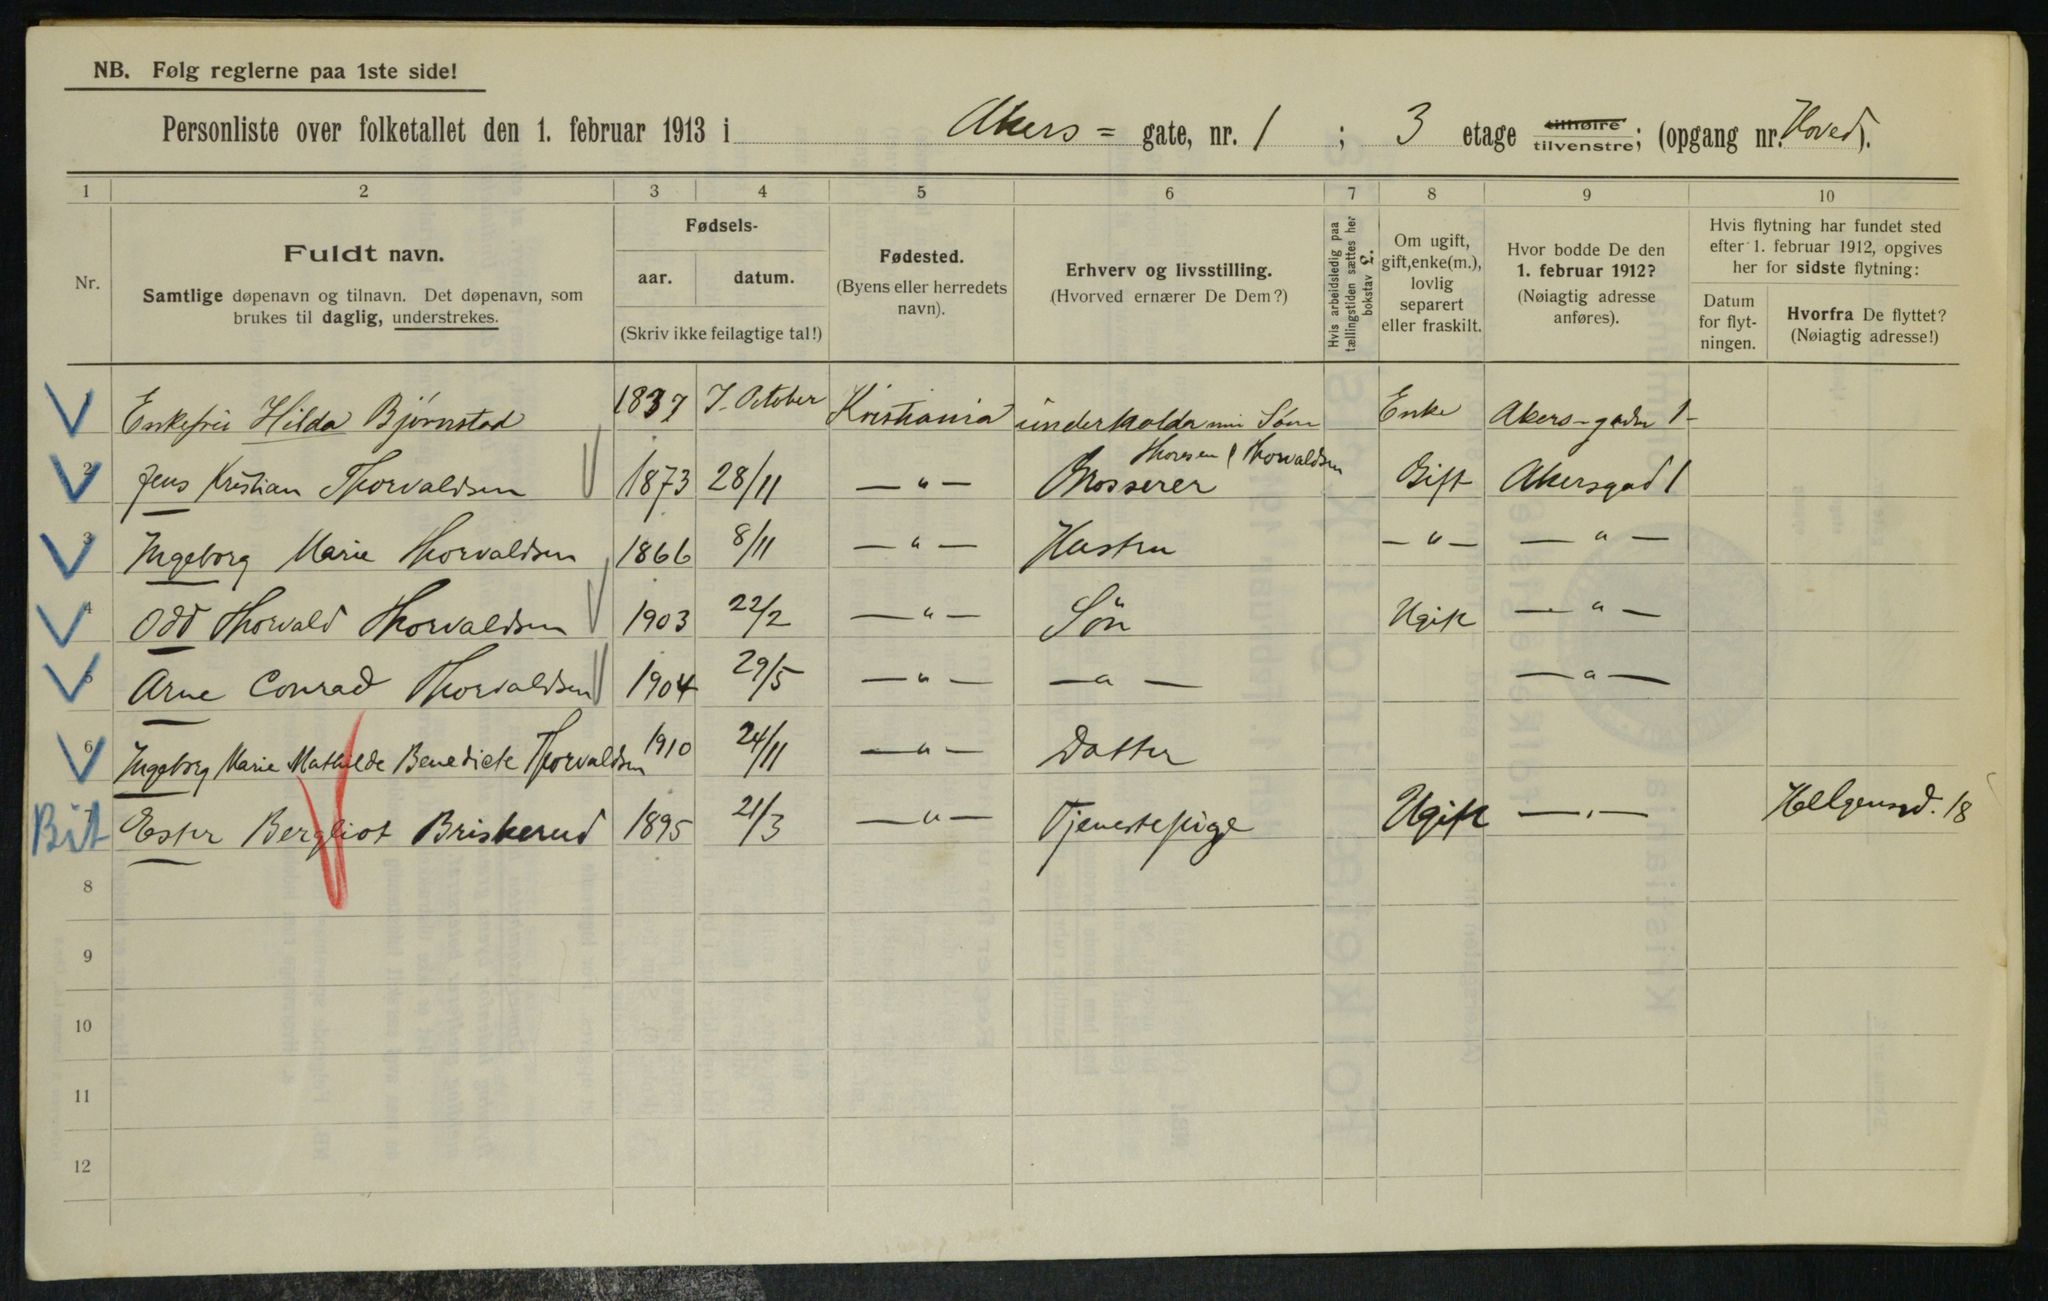 NB. Følg reglerne paa 1ste side!
Personliste over folketallet den 1. februar 1913 i Akers = gate, nr. 1 ; 3 etage tilhøire tilvenstre; (opgang nr. Hoved).
1 2 3 4 5 6 7 8 9 10
Nr.
Fuldt navn.
Samtlige døpenavn og tilnavn. Det døpenavn, som
brukes til daglig, understrekes.
Fødsels-
aar. datum.
(Skriv ikke feilagtige tal!)
Fødested.
(Byens eller herredets
navn).
Erhverv og livsstilling.
(Hvorved ernærer De Dem?)
Hvis arbeidsledig paa
tællingstiden sættes her
bokstav L.
Om ugift,
gift, enke(m.),
lovlig
separert
eller fraskilt.
Hvor bodde De den
1. februar 1912?
(Nøiagtig adresse
anføres).
Hvis flytning har fundet sted
efter 1. februar 1912, opgives
her for sidste flytning:
Datum
for flyt-
ningen.
Hvorfra De flyttet?
(Nøiagtig adresse!)
1 Enkefru Hilda Bjørnstad 1837 7. October Kristiania underholdes min Søn Enke Akers-gaden 1-
2 Jens Kristian Thorvaldsen 1873 28/11 — " — Thoresen & Thorvaldsen
Grosserer Gift Akersgad 1
3 Ingeborg Marie Thorvaldsen 1866 8/11 — " — Hustru — " — — " —
4 Odd Thorvald Thorvaldsen 1903 22/2 — " — Søn Ugift — " —
5 Arne Conrad Thorvaldsen 1904 29/5 — " — — " — — " —
6 Ingeborg Marie Mathilde Benedicte Thorvaldsen 1910 24/11 — " — Datter
Bit Ester Bergliot Briskerud 1895 21/3 — " — Tjenestepige Ugift — " — Helgensgd. 18
8
9
10
11
12